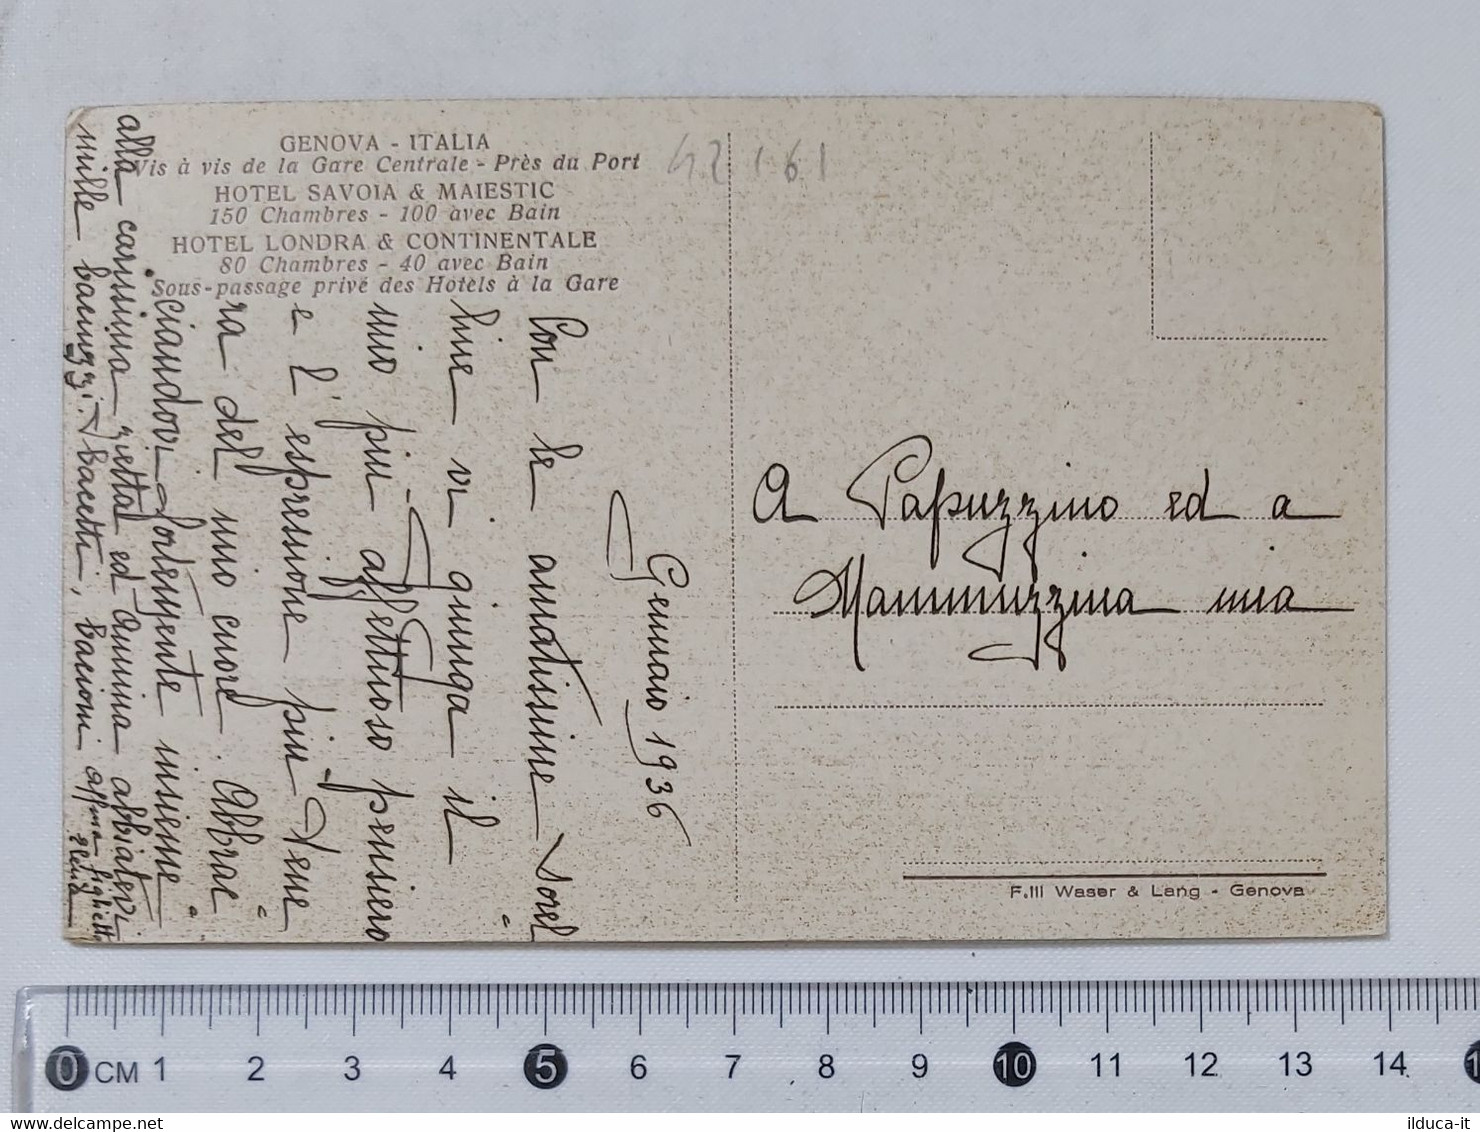 GENOVA - ITALIA
Vis à vis de la Gare Centrale - Près du Port
HOTEL SAVOIA & MAIESTIC
150 Chambres - 100 avec Bain
HOTEL LONDRA & CONTINENTALE
80 Chambres - 40 avec Bain
Sous-passage privé des Hotels à la Gare
42161
Gennaio 1936
Con le amatissime sorel=
line vi giunga il
mio più affettuoso pensiero
e l'espressione più tene
ra del mio cuore. Abbrac=
ciandovi fortemente insieme
alla carissima zietta ed Annina abbiatevi
mille baciuzzi, bacetti, bacioni affma figlietta
A Papuzzino ed a
Mammuzzina mia
F.lli Waser & Lang - Genova
0 CM 1 2 3 4 5 6 7 8 9 10 11 12 13 14 1
ilduca-it